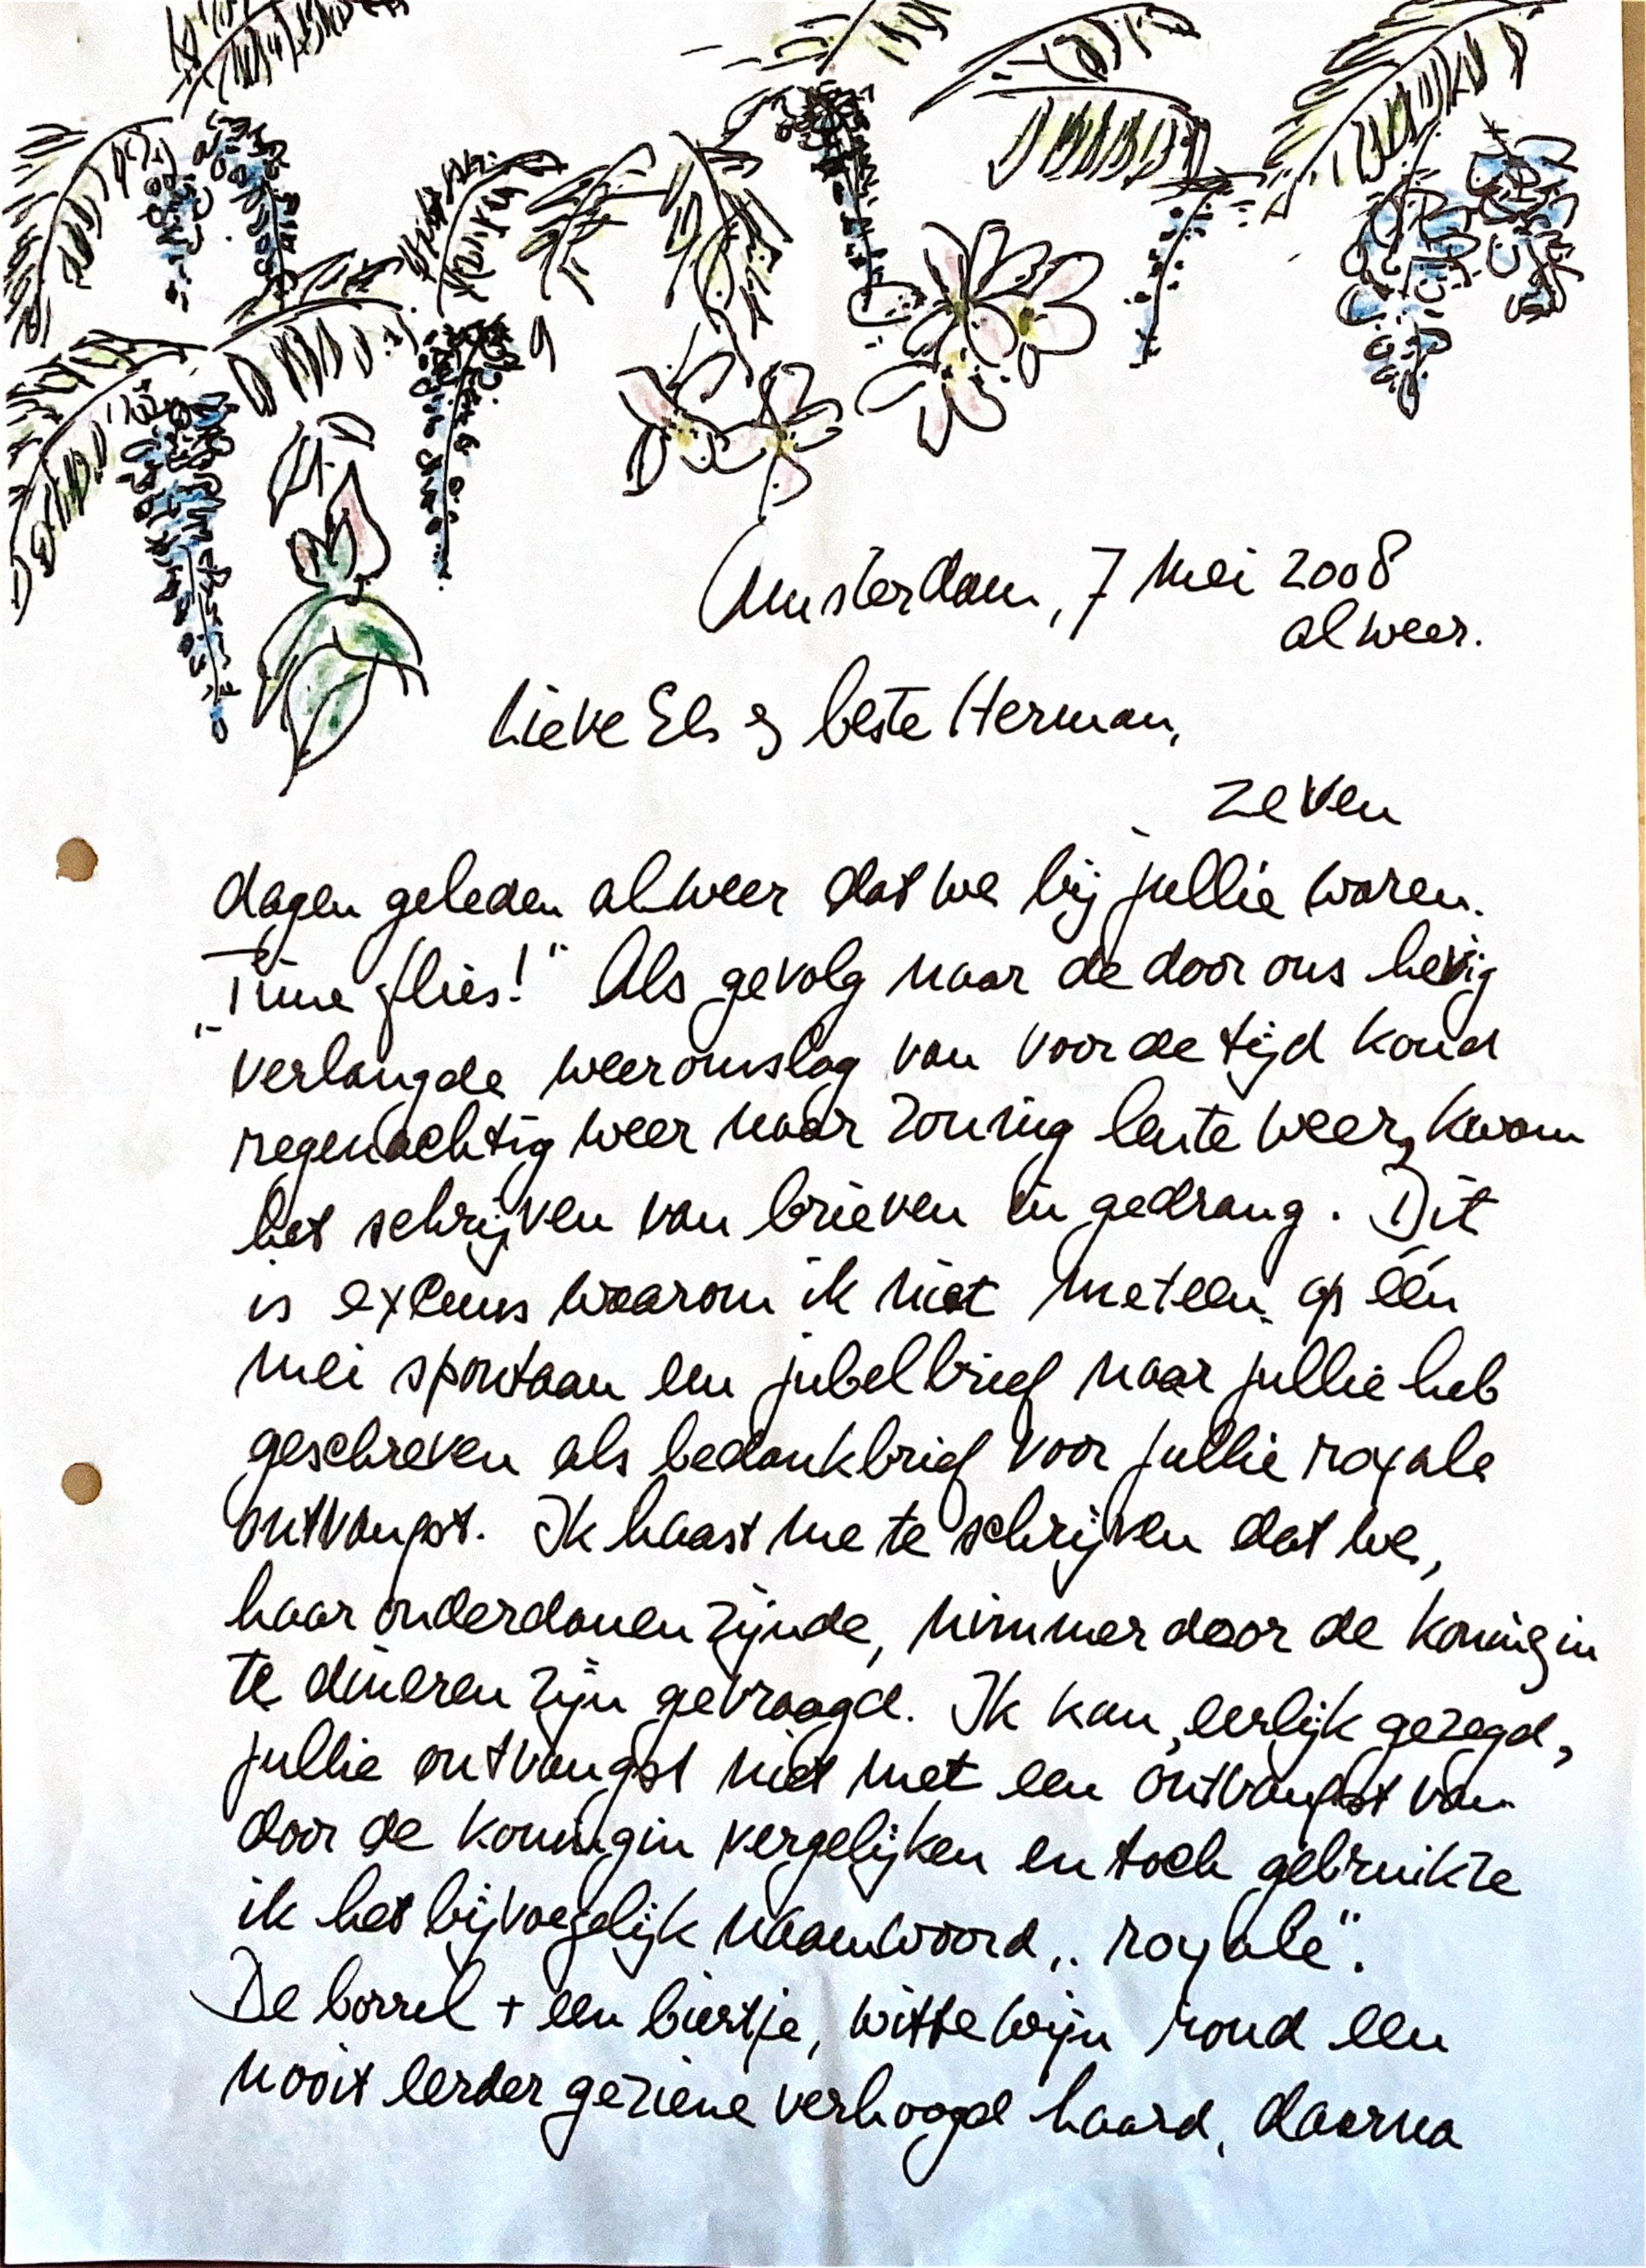 Amsterdam, 7 mei 2008
alweer.
Lieve Els & beste Herman,
zeven
dagen geleden alweer dat we bij jullie waren.
"Time flies!" Als gevolg naar de door ons hevig
verlangde weeromslag van voor de tijd koud
regenachtig weer naar zonnig lente weer, kwam
het schrijven van brieven in gedrang. Dit
is excuus waarom ik niet meteen op één
mei spontaan een jubelbrief naar jullie heb
geschreven als bedankbrief voor jullie royale
ontvangst. Ik haast me te schrijven dat we,
haar onderdanen zijnde, nimmer door de koningin
te dineren zijn gevraagd. Ik kan, eerlijk gezegd,
jullie ontvangst niet met een ontvangst van
door de koningin vergelijken en toch gebruikte
ik het bijvoegelijk naamwoord „royale".
De borrel + een biertje, witte wijn rond een
nooit eerder geziene verhoogd haard, daarna